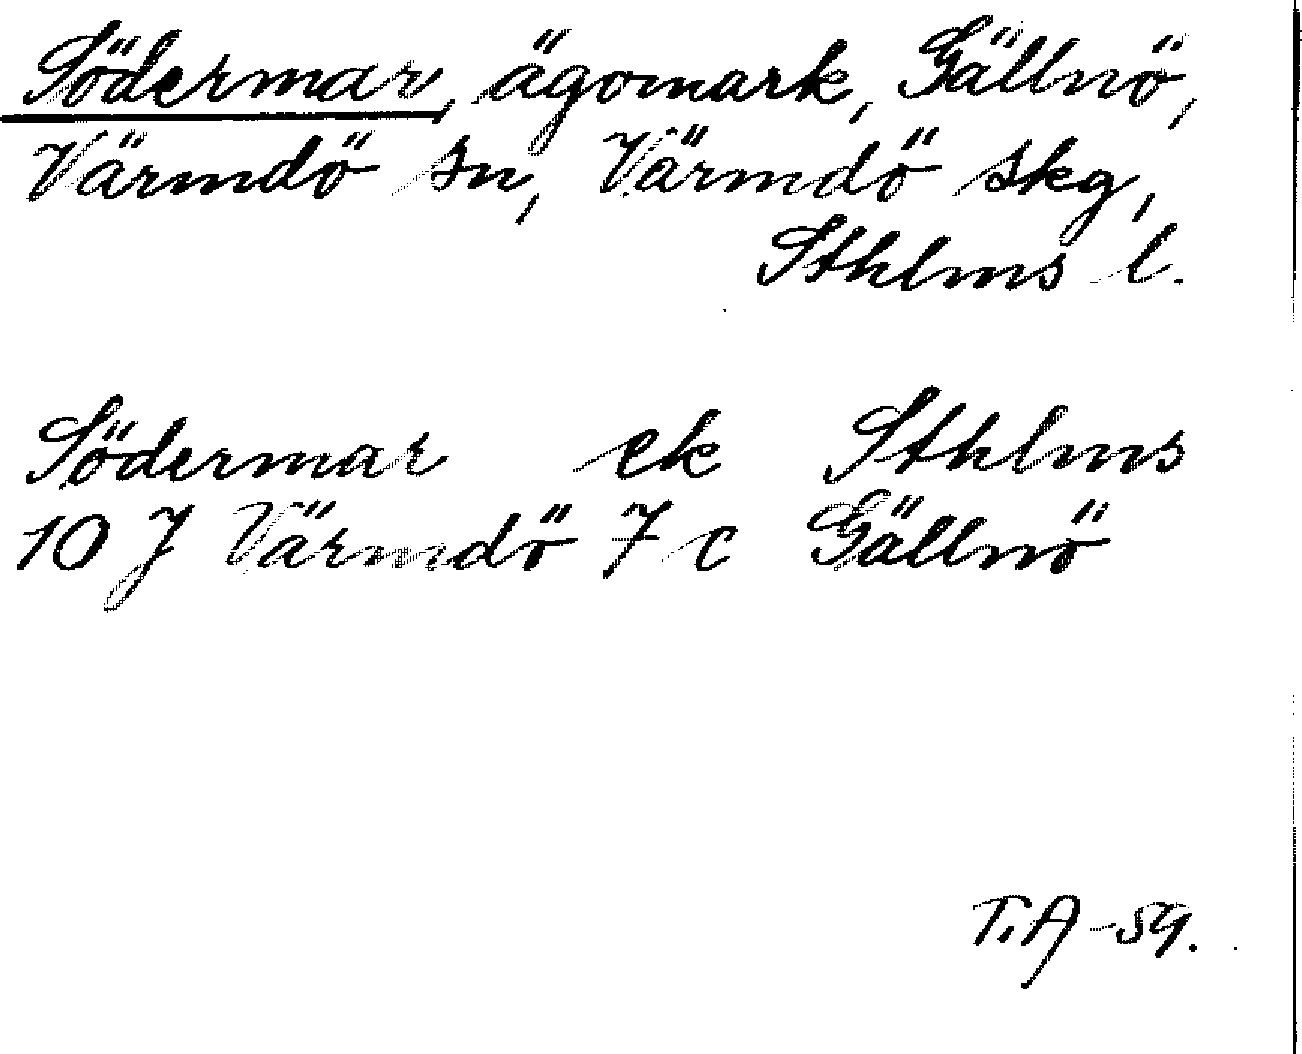 Södermar, ägomark, Gällnö,
Värmdö sn, Värmdö skg,
Sthlms l.
Södermar ek Sthlms
10 J Värmdö 7 c Gällnö
T.A -59.